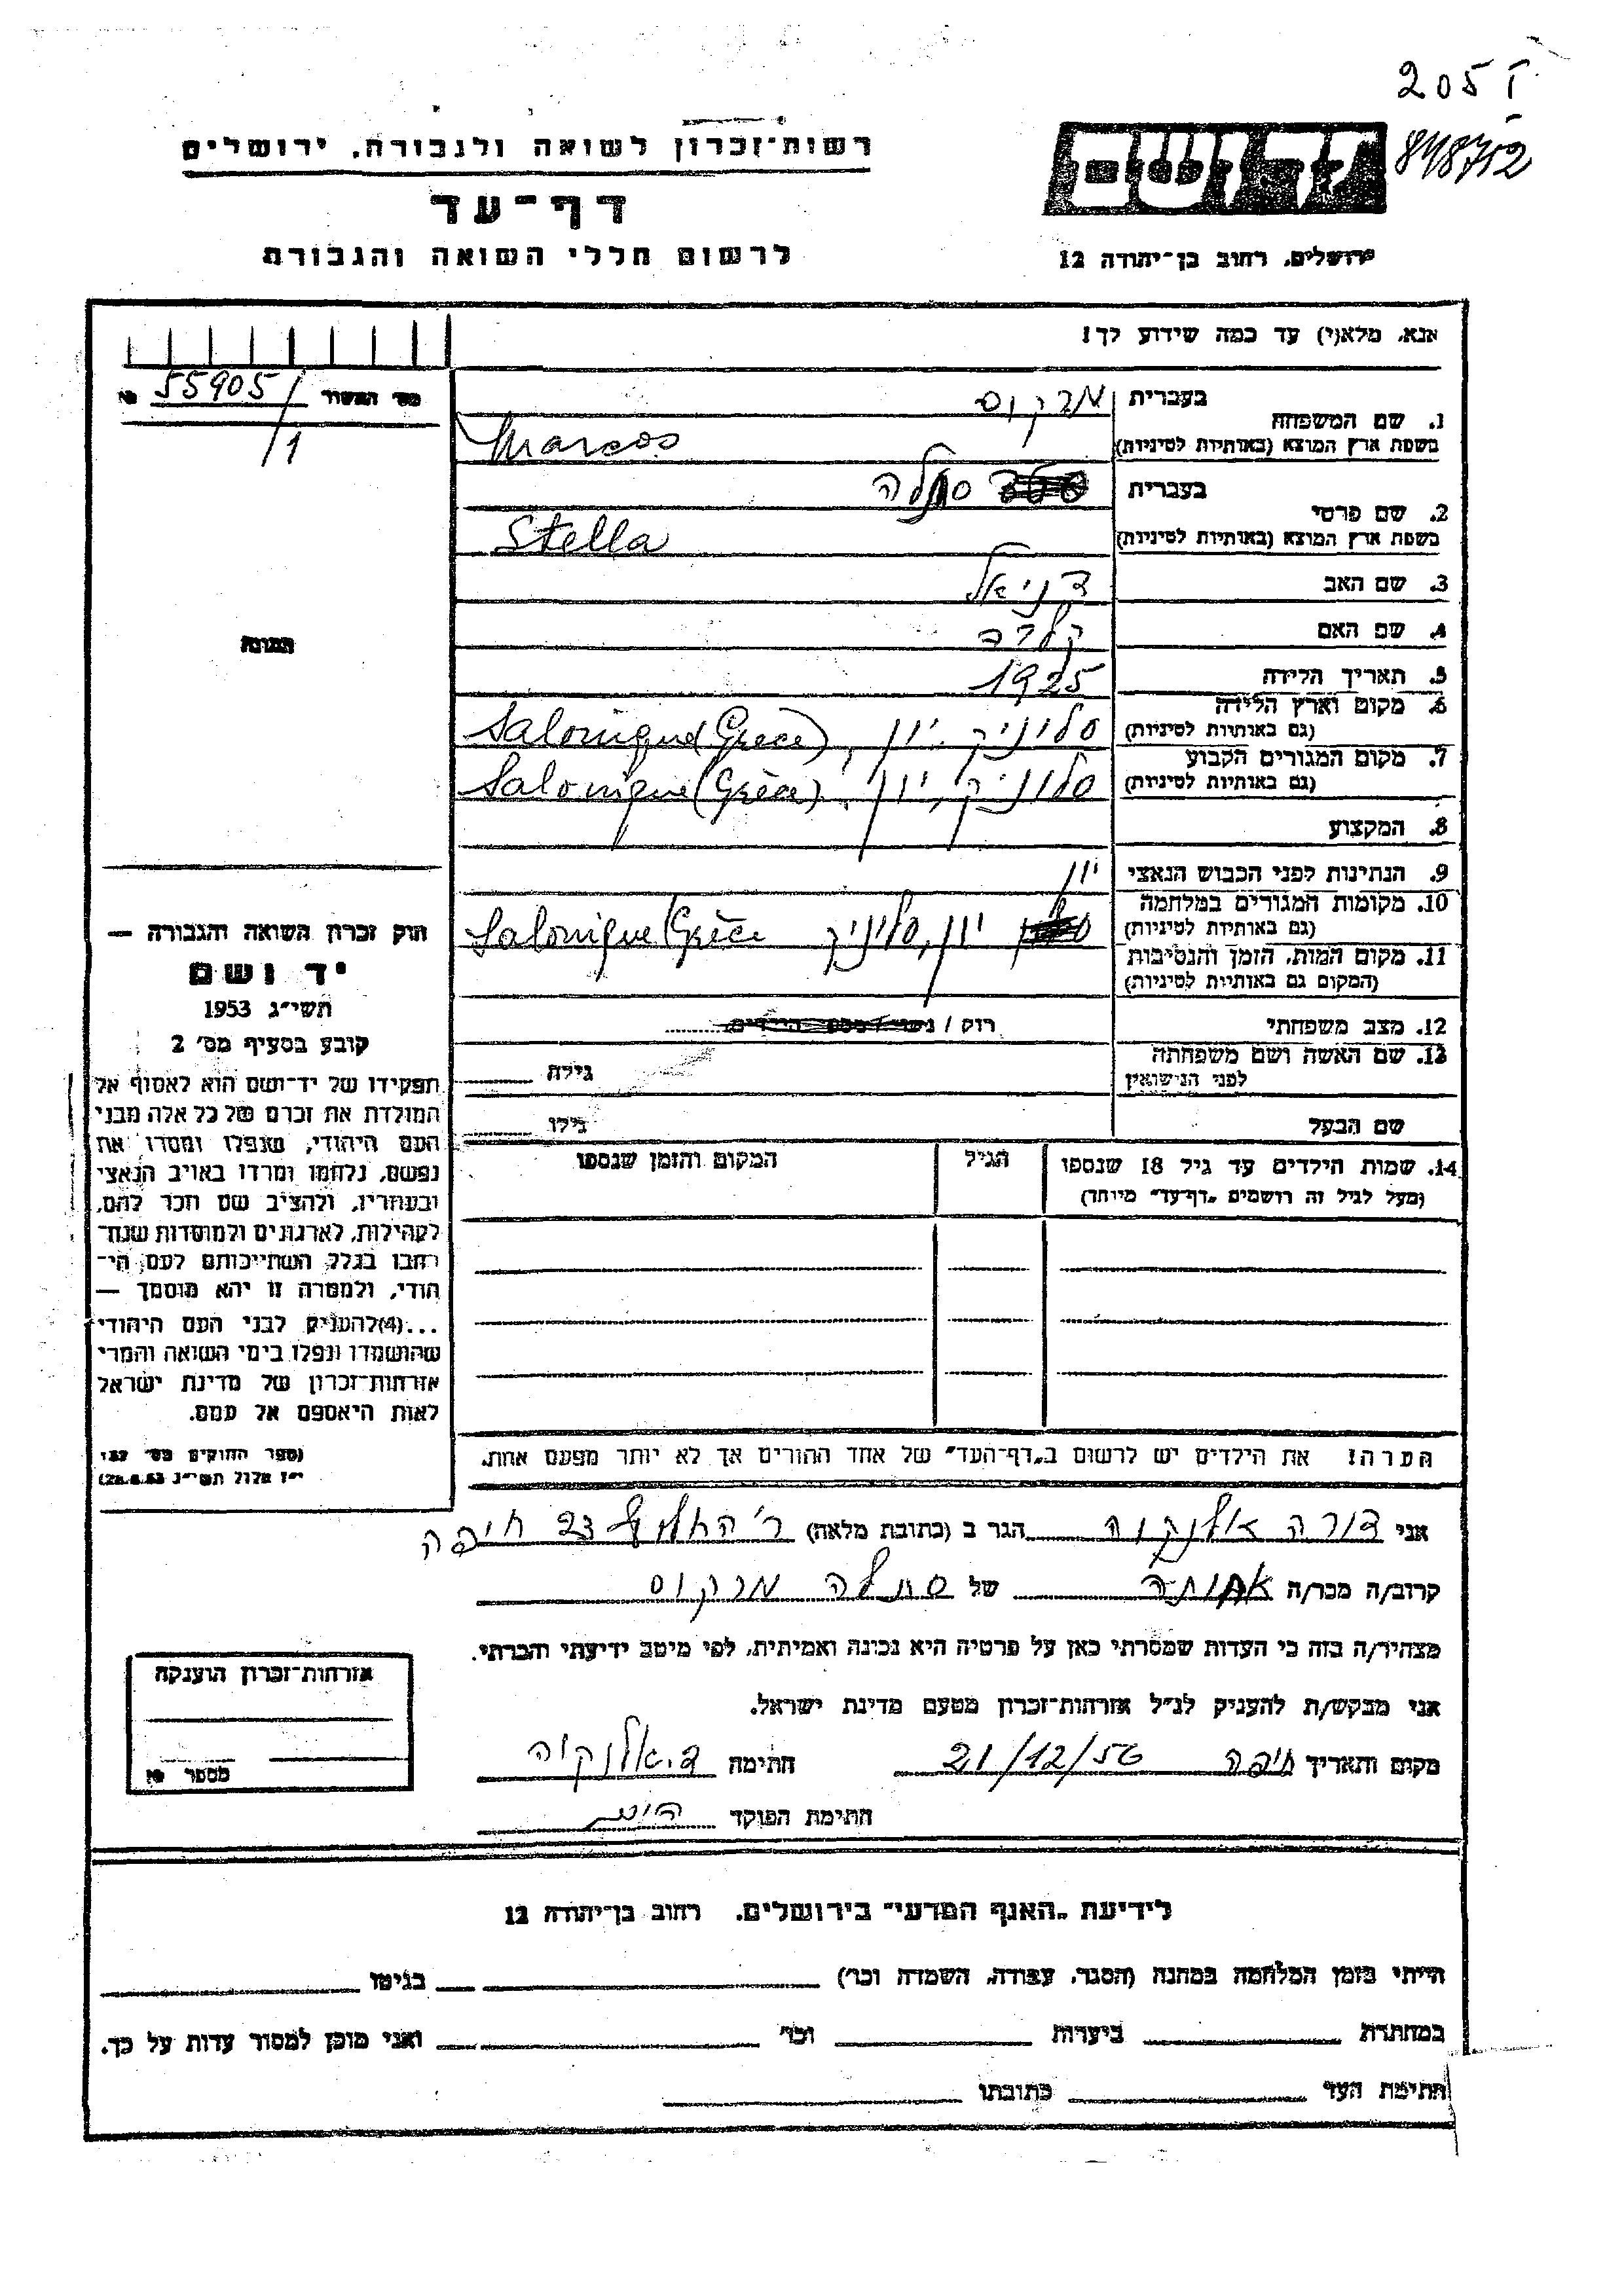 205 I
848752
רשות־זכרון לשואה ולגבורה, ירושלים
דף־עד
לרשום חללי השואה והגבורה
יד ושם
ירושלים, רחוב בן־יהודה 12
אנא, מלא(י) עד כמה שידוע לך!
מס׳ התעוד 55905/1
1. שם המשפחה
בעברית מרקוס
בשפת ארץ המוצא (באותיות לטיניות) Marcos
2. שם פרטי
בעברית סתלה
בשפת ארץ המוצא (באותיות לטיניות) Stella
3. שם האב דניאל
4. שם האם
5. תאריך הלידה 1925
6. מקום וארץ הלידה
(גם באותיות לטיניות) סלוניק, יון, Salonique (Grèce)
7. מקום המגורים הקבוע
(גם באותיות לטיניות) סלוניק, יון, Salonique (Grèce)
8. המקצוע
9. הנתינות לפני הכבוש הנאצי יון
10. מקומות המגורים במלחמה
(גם באותיות לטיניות) יון, סלוניק Salonique Grèce
11. מקום המות, הזמן והנסיבות
(המקום גם באותיות לטיניות)
12. מצב משפחתי רווק / נשוי / מספר הילדים
13. שם האשה ושם משפחתה
לפני הנישואין
גילה
שם הבעל
גילו
14. שמות הילדים עד גיל 18 שנספו
(מעל לגיל זה רושמים „דף־עד״ מיוחד)
הגיל
המקום והזמן שנספו
התמונה
חוק זכרון השואה והגבורה —
יד ושם
תשי״ג 1953
קובע בסעיף מס׳ 2
תפקידו של יד־ושם הוא לאסוף אל
המולדת את זכרם של כל אלה מבני
העם היהודי, שנפלו ומסרו את
נפשם, נלחמו ומרדו באויב הנאצי
ובעוזריו, ולהציב שם וזכר להם,
לקהילות, לארגונים ולמוסדות שנח־
רבו בגלל השתייכותם לעם הי־
הודי, ולמטרה זו יהא מוסמך —
...(4) להעניק לבני העם היהודי
שהושמדו ונפלו בימי השואה והמרי
אזרחות־זכרון של מדינת ישראל
לאות היאספם אל עמם.
(ספר החוקים מס׳ 132,
י״ז אלול תשי״ג 28.8.53)
הערה! את הילדים יש לרשום ב„דף־העד״ של אחד ההורים אך לא יותר מפעם אחת.
אני דורה אלנקוה הגר ב (כתובת מלאה) ר׳ החלוץ 23 חיפה
קרוב/ה מכר/ה אחותה של סתלה מרקוס
מצהיר/ה בזה כי העדות שמסרתי כאן על פרטיה היא נכונה ואמיתית, לפי מיטב ידיעתי והכרתי.
אני מבקש/ת להעניק לנ״ל אזרחות־זכרון מטעם מדינת ישראל.
מקום ותאריך חיפה 21/12/56 חתימה ד. אלנקוה
חתימת הפוקד
אזרחות־זכרון הוענקה
מספר
לידיעת „האגף המדעי״ בירושלים, רחוב בן־יהודה 12
הייתי בזמן המלחמה במחנה (הסגר, עבודה, השמדה וכו׳) בגיטו
במחתרת ביערות וכו׳ ואני מוכן למסור עדות על כך.
חתימת העד כתובתו